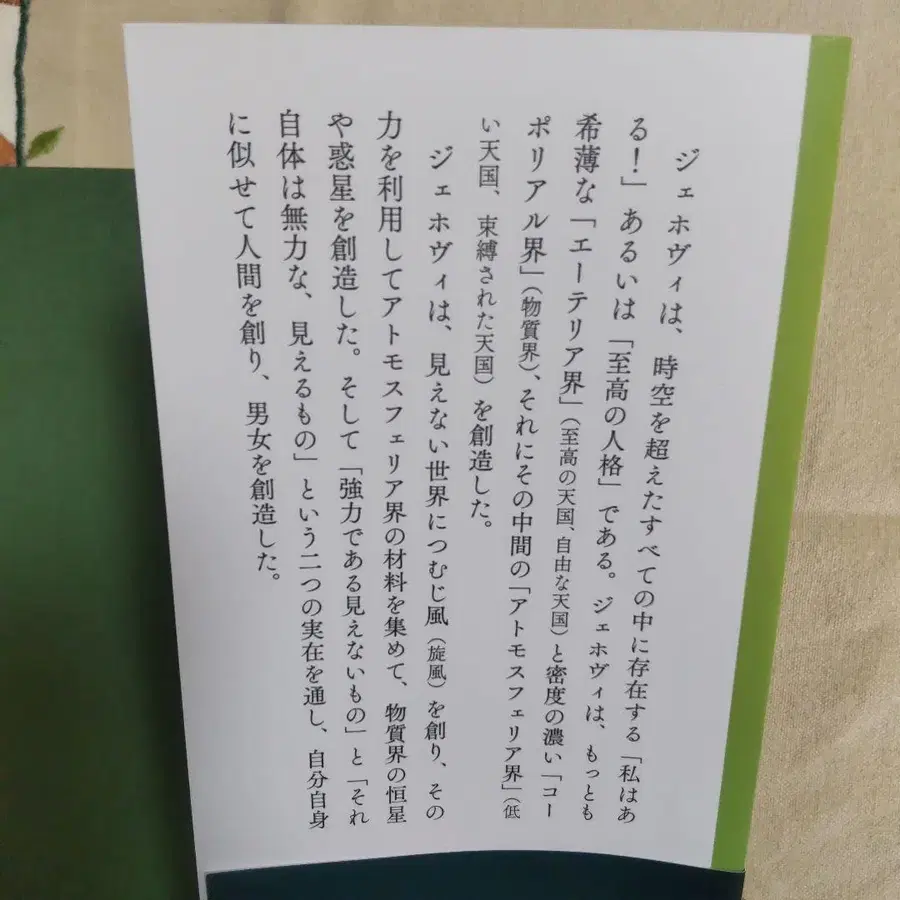 ジェホヴィは、時空を超えたすべての中に存在する「私はあ
る！」あるいは「至高の人格」である。ジェホヴィは、もっとも
希薄な「エーテリア界」（至高の天国、自由な天国）と密度の濃い「コー
ポリアル界」（物質界）、それにその中間の「アトモスフェリア界」（低
い天国、束縛された天国）を創造した。
ジェホヴィは、見えない世界につむじ風（旋風）を創り、その
力を利用してアトモスフェリア界の材料を集めて、物質界の恒星
や惑星を創造した。そして「強力である見えないもの」と「それ
自体は無力な、見えるもの」という二つの実在を通し、自分自身
に似せて人間を創り、男女を創造した。